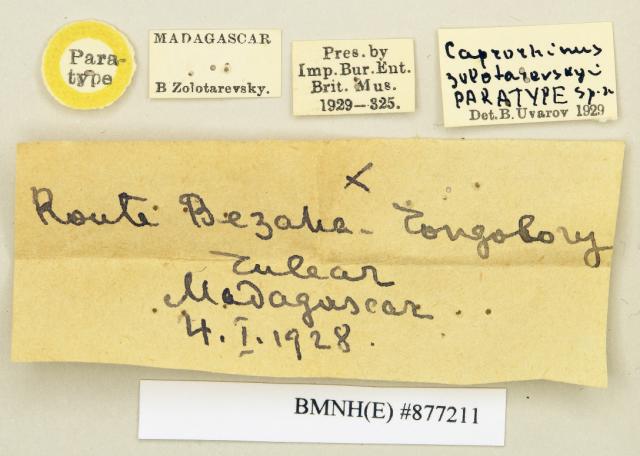 Para-
type
MADAGASCAR
B Zolotarevsky.
Pres. by
Imp. Bur. Ent.
Brit. Mus.
1929—325.
Caprorhinus
zolotarevskyi
PARATYPE sp.n
Det. B. Uvarov 1929
X
Route Bezaha - Tongobory
Tulear
Madagascar
4. I. 1928.
BMNH(E) #877211